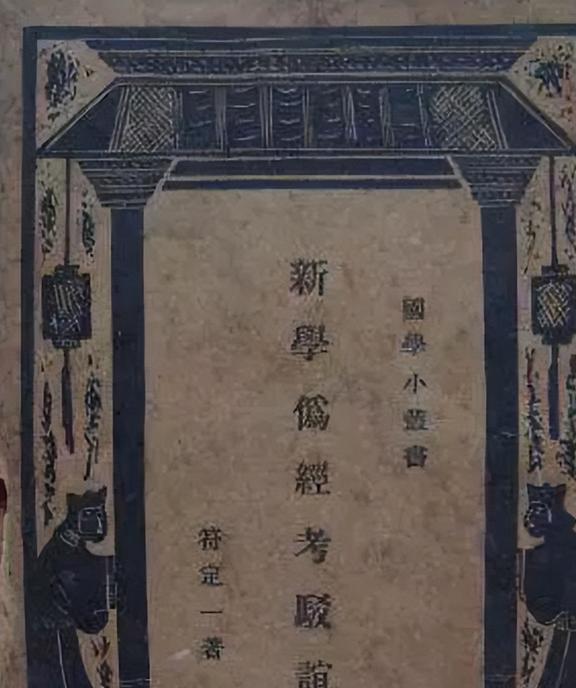 國學小叢書
新學僞經考駁誼
符定一著